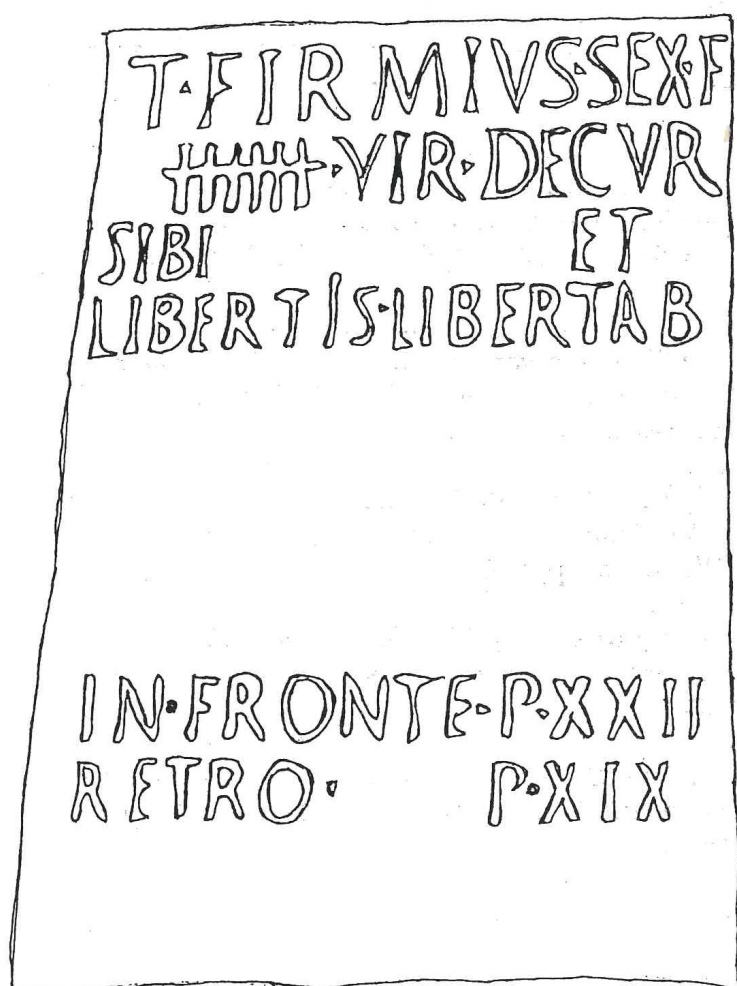 T·FIRMIVS·SEX·F
IIIIII·VIR·DECVR
SIBI ET
LIBERTIS·LIBERTAB
IN·FRONTE·P·XXII
RETRO· P·XIX